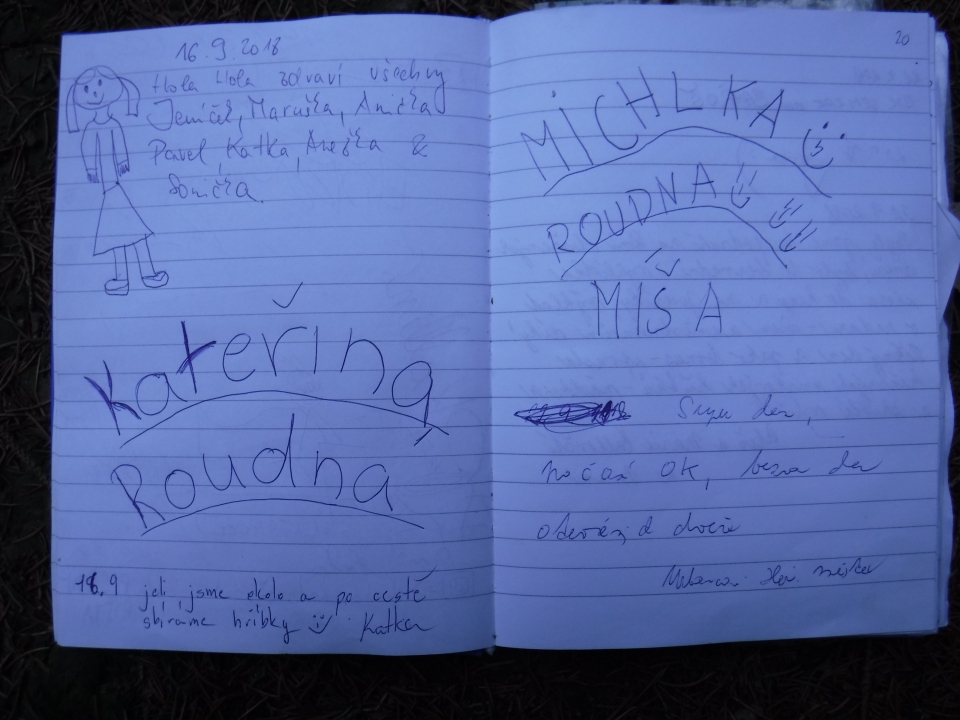 16.9.2018
Hola Hola zdraví všechny
Jeníček, Maruška, Anička
Pavel, Katka, Anežka &
Sonička.
Kateřina
Roudná
18.9 jeli jsme okolo a po cestě
sbíráme hříbky Katka
20
MICHLKA
ROUDNÁ
MÍŠA
Super den,
počasí OK,
dveře